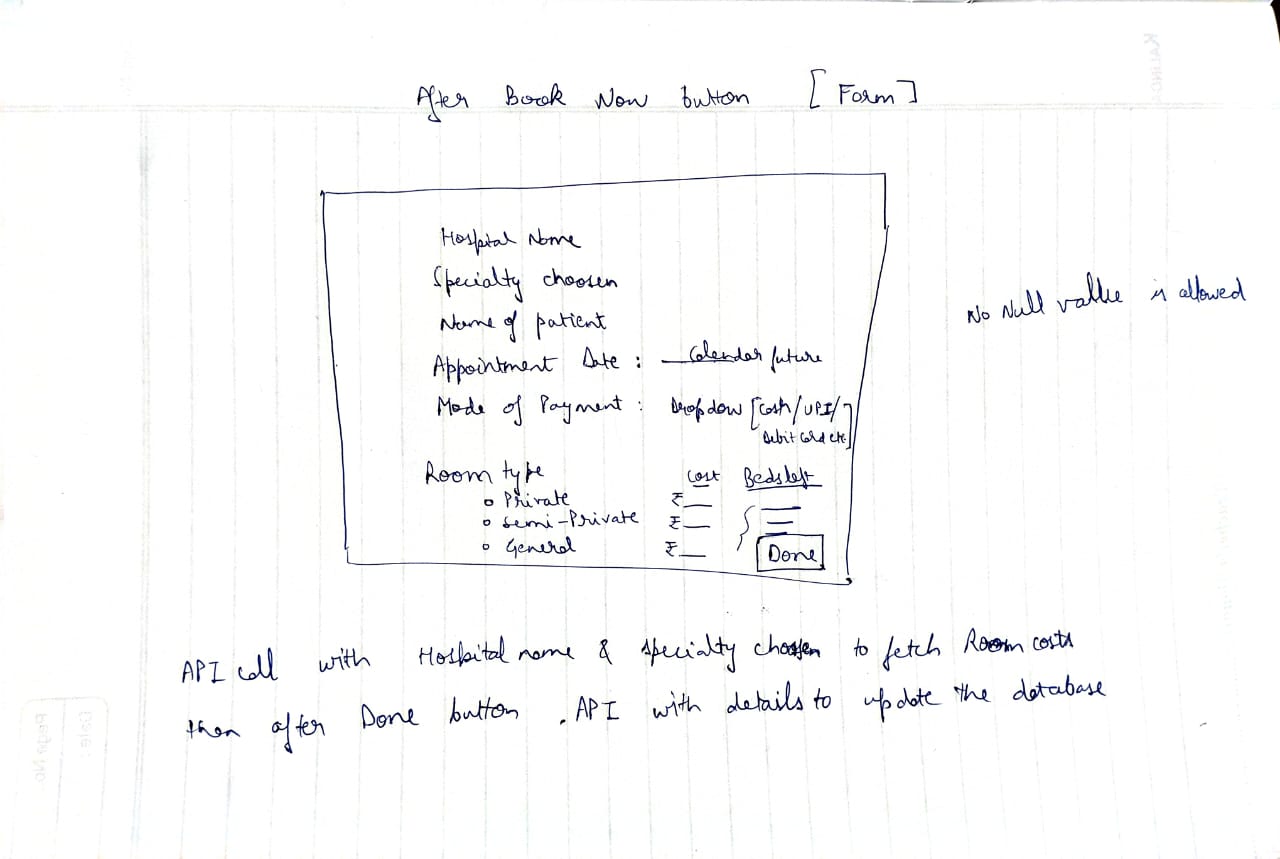 After Book Now button [Form]
Hospital Name
Specialty choosen
Name of patient
Appointment Date : Calendar future
Mode of Payment : Dropdow [Cash/UPI/
Debit Card etc]
Room type Cost Beds left
o Private ₹__
o Semi-Private ₹__
o General ₹__
Done
No Null value is allowed
API call with Hospital name & specialty chosen to fetch Room costs
then after Done button . API with details to update the database